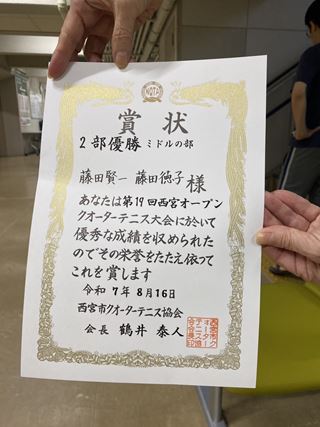 NQTA
賞状
2部優勝 ミドルの部
藤田賢一 藤田徳子様
あなたは第19回西宮オープン
クオーターテニス大会に於いて
優秀な成績を収められた
のでその栄誉をたたえ依って
これを賞します
令和 7年 8月16日
西宮市クオーターテニス協会
会長 鶴井 泰人